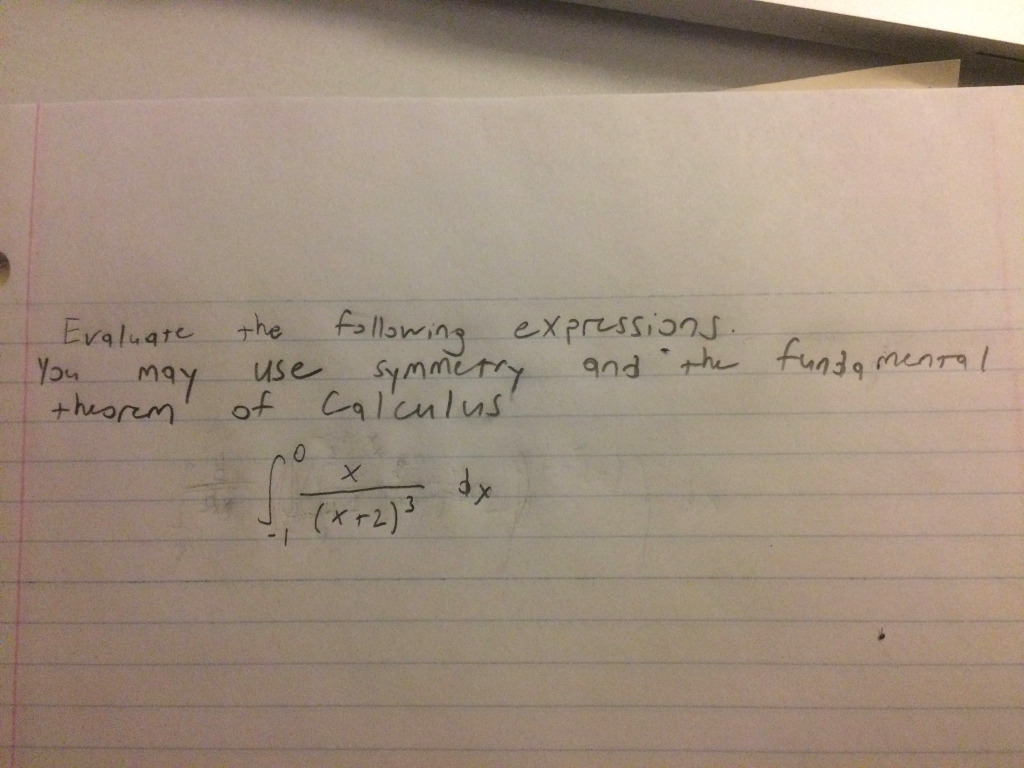 Evaluate the following expressions.
You may use symmetry and the fundamental
theorem of Calculus
∫₋₁⁰ x/(x+2)³ dx